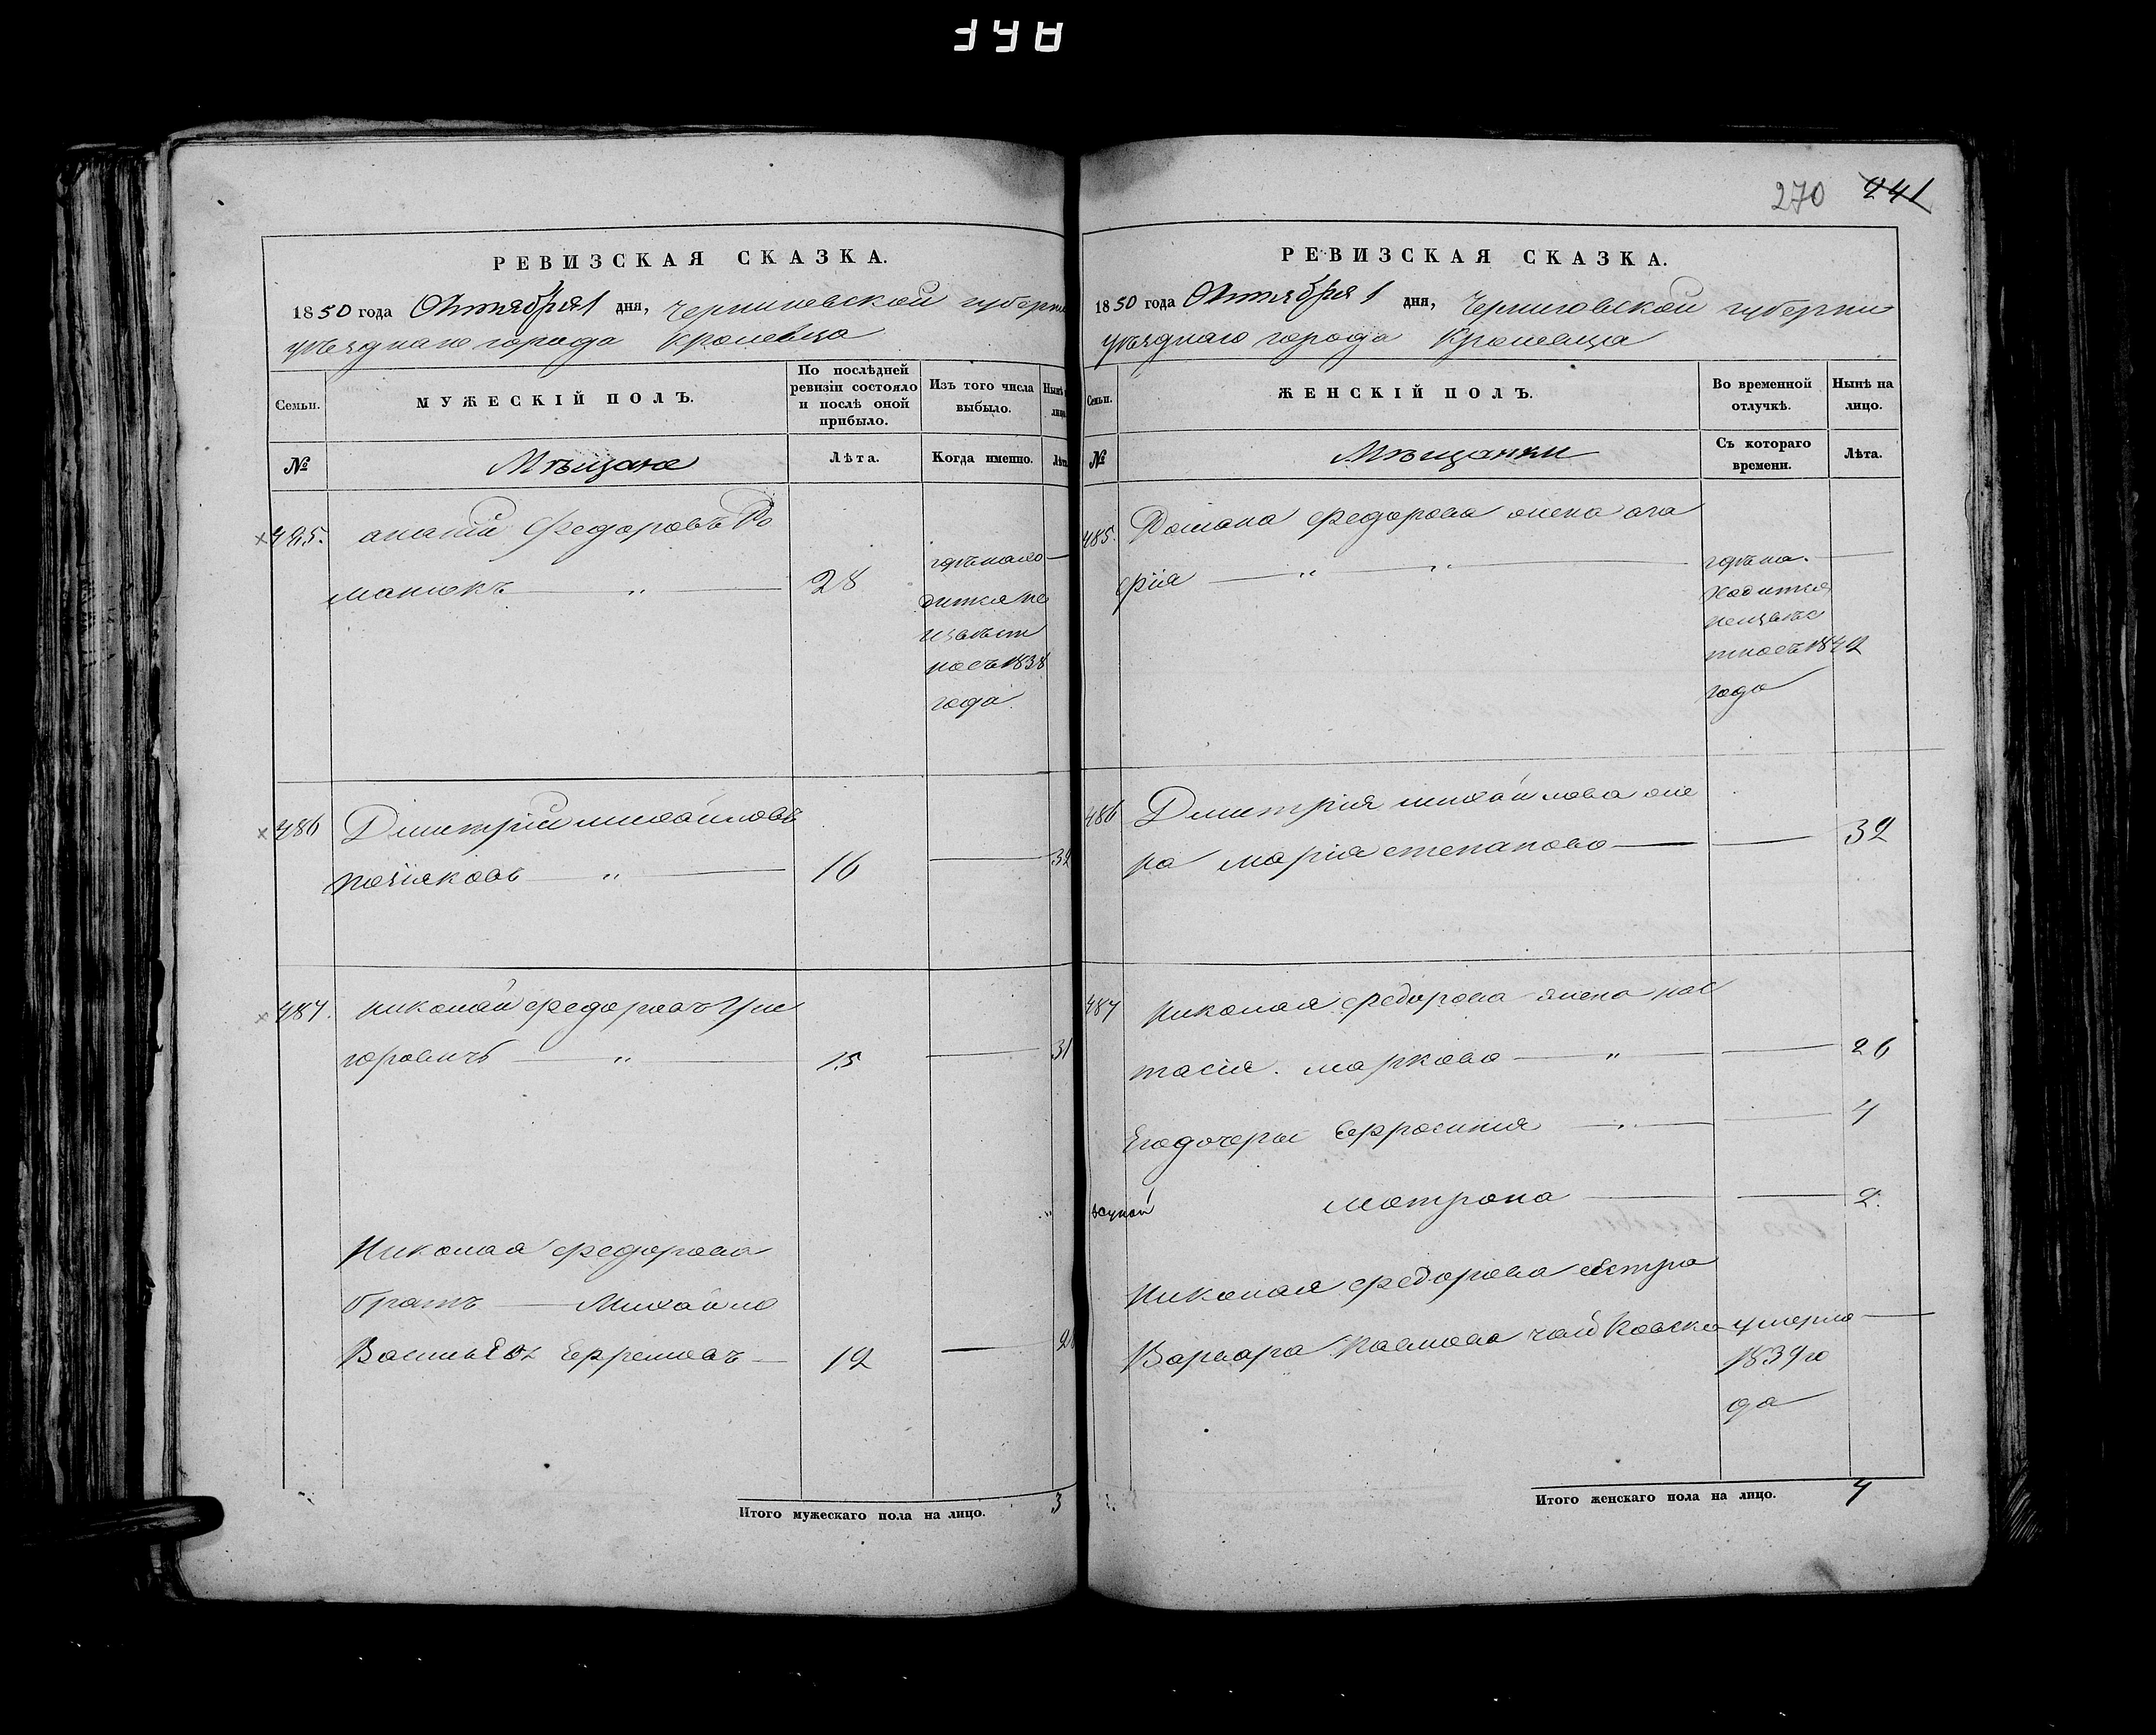 270 241
РЕВИЗСКАЯ СКАЗКА.
1850 года Октября 1 дня, Черниговской губерн
уѣзднаго города Кролевца
Семьи.
МУЖЕСКІЙ ПОЛЪ.
По послѣдней ревизіи состояло и послѣ оной прибыло.
Изъ того числа выбыло.
Нынѣ
лицо
№
Мѣщане
Лѣта.
Когда именно.
Лѣта
485. Федоровъ Ро
манюкъ — „ — 28
где нахо
дится не
извѣст
но съ 1838
года.
486 Дмитрій Михайловъ
— „ — 16 — 32
487. Николай Федоровъ Гри
горовичъ — „ — 15 — 31
Николая Федорова
братъ — Михайло
Ефремовъ — 12 —
Итого мужескаго пола на лицо. 3
РЕВИЗСКАЯ СКАЗКА.
1850 года Октября 1 дня, Черниговской губерни
уѣзднаго города Кролевца
Семьи.
ЖЕНСКІЙ ПОЛЪ.
Во временной отлучкѣ.
Нынѣ на лицо.
№
Мѣщанки
Съ котораго времени.
Лѣта.
485. Романа Федорова жена ага
фія — „ — „ —
где на
ходится
неизвѣс
тно съ 1842
года
486 Дмитрія Михайлова же
на Марія Степанова — — 32
487 Николая Федорова жена нас
тасія Маркова — „ — 26
Его дочери Ефросинія — „ — 4
Матрона — — 2.
Николая Федорова сестра
Варвара умерла —
1839 го
да
Итого женскаго пола на лицо. 4